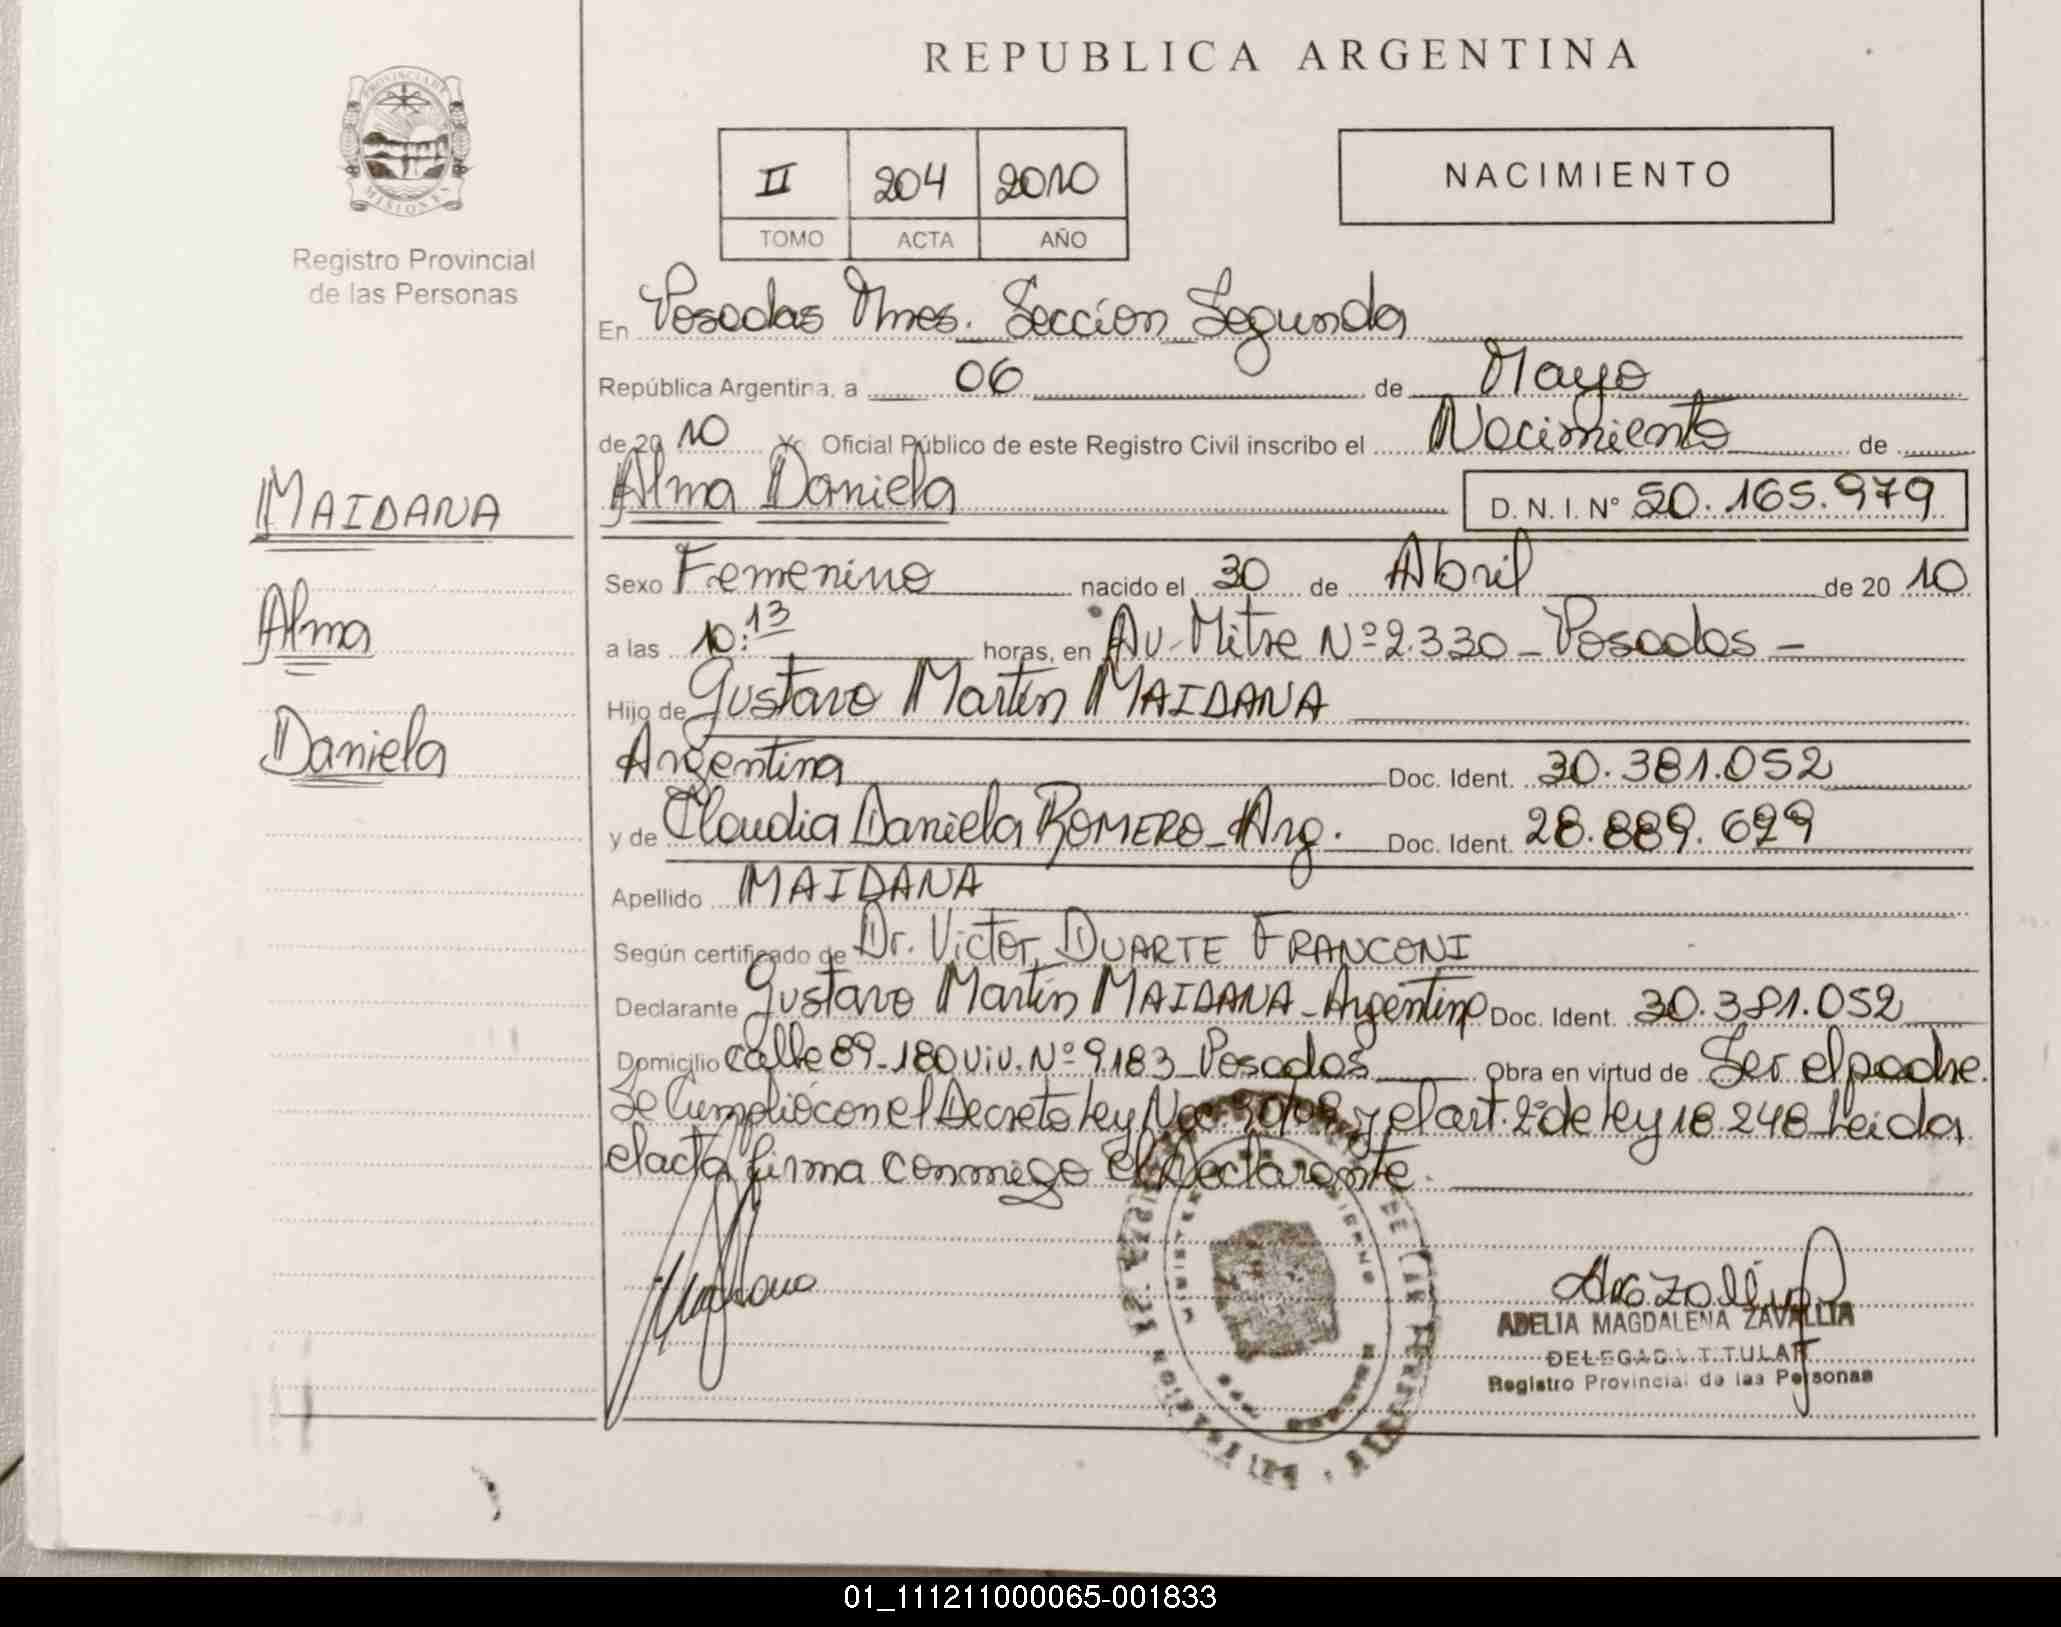 REPUBLICA ARGENTINA
PROVINCIA DE
MISIONES
Registro Provincial
de las Personas
II 204 2010
TOMO ACTA AÑO
NACIMIENTO
En Posadas Mnes. Seccion Segunda
República Argentina, a 06 de Mayo
de 2010 Yo Oficial Público de este Registro Civil inscribo el Nacimiento de
MAIDANA
Alma Daniela D. N. I. Nº 50.165.979
Sexo Femenino nacido el 30 de Abril de 2010
Alma
a las 10:13 horas, en Av. Mitre Nº 2.330 - Posadas -
Hijo de Gustavo Martín MAIDANA
Daniela
Argentina Doc. Ident. 30.381.052
y de Claudia Daniela ROMERO - Arg. Doc. Ident. 28.889.699
Apellido MAIDANA
Según certificado de Dr. Victor DUARTE FRANCONI
Declarante Gustavo Martín MAIDANA - Argentino Doc. Ident. 30.381.052
Domicilio calle 89 - 180 viv. Nº 9183 - Posadas Obra en virtud de Ser el padre.
Se Cumplió con el Decreto Ley y el art. 2º de Ley 18.248 - Leida
el acta firma conmigo el Declarante.
ADELIA MAGDALENA ZAVALLIA
DELEGADA TITULAR
Registro Provincial de las Personas
01_111211000065-001833